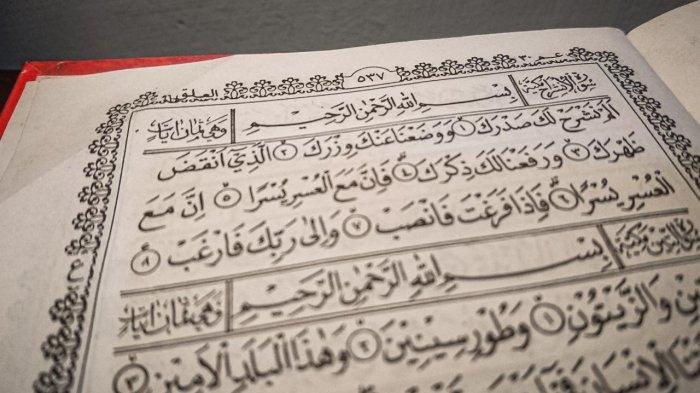 عم ٣٠
٥٣٧
العلق
سورة الانشراح مكية
بِسْمِ اللهِ الرَّحْمٰنِ الرَّحِيْمِ
وَهِيَ ثَمَانُ اٰيَاتٍ
اَلَمْ نَشْرَحْ لَكَ صَدْرَكَ ١ وَوَضَعْنَا عَنْكَ وِزْرَكَ ٢ الَّذِيْٓ اَنْقَضَ
ظَهْرَكَ ٣ وَرَفَعْنَا لَكَ ذِكْرَكَ ٤ فَاِنَّ مَعَ الْعُسْرِ يُسْرًا ٥ اِنَّ مَعَ
الْعُسْرِ يُسْرًا ٦ فَاِذَا فَرَغْتَ فَانْصَبْ ٧ وَاِلٰى رَبِّكَ فَارْغَبْ ٨
التين مكية
بِسْمِ اللهِ الرَّحْمٰنِ الرَّحِيْمِ
وَهِيَ ثَمَانُ اٰيَاتٍ
وَالزَّيْتُوْنِ ١ وَطُوْرِ سِيْنِيْنَ ٢ وَهٰذَا الْبَلَدِ الْاَمِيْنِ ٣
الْاِنْسَانَ فِيْٓ